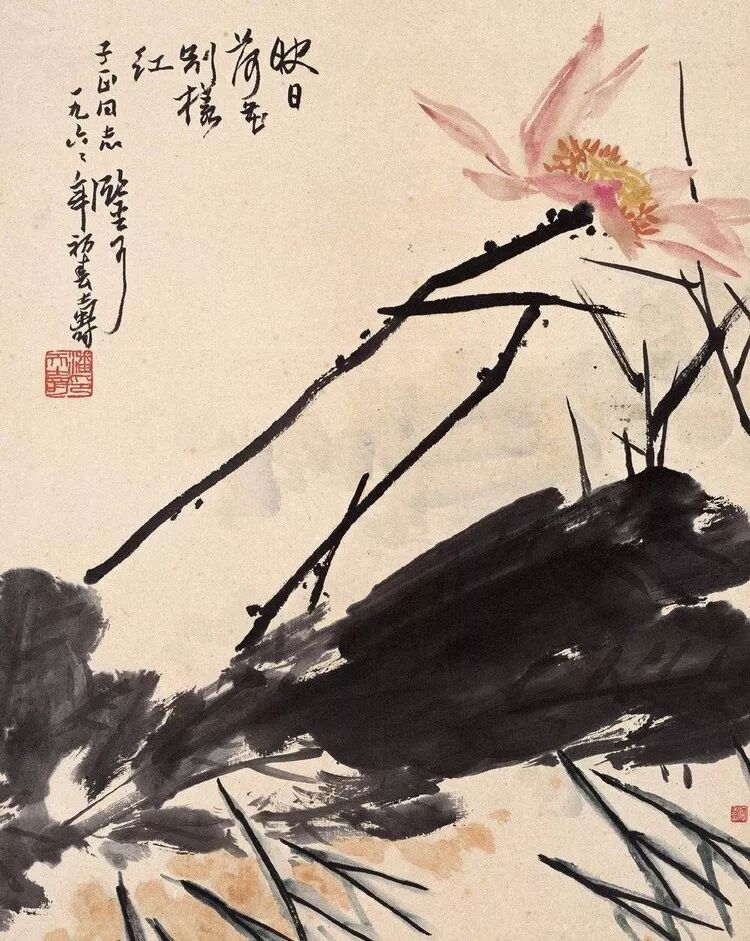 映日
荷花
别樣
红
子正同志
一九六二年初春寿